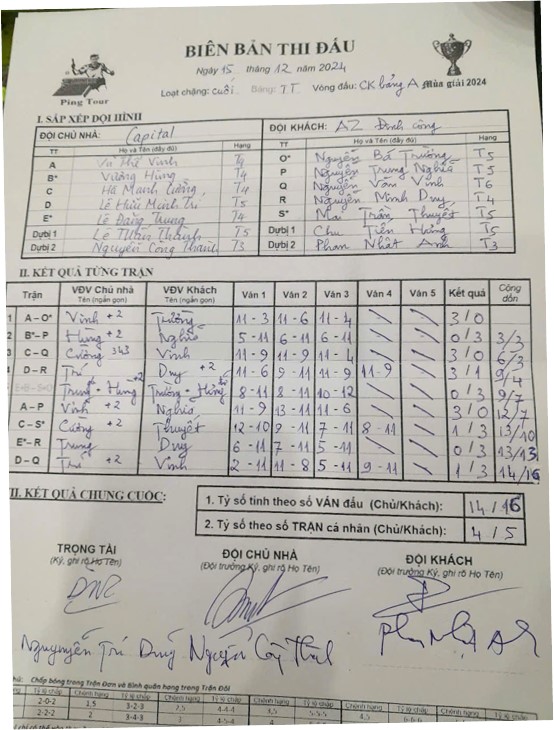 BIÊN BẢN THI ĐẤU
Ngày 15 tháng 12 năm 2024
Ping Tour
Loại chặng: Cuối Bảng: TT Vòng đấu: CK bảng A Mùa giải 2024
I. SẮP XẾP ĐỘI HÌNH
ĐỘI CHỦ NHÀ: Capital ĐỘI KHÁCH: AZ Định Công
TT Họ và Tên (đầy đủ) Hạng TT Họ và Tên (đầy đủ) Hạng
A Vũ Thế Vinh T4 O* Nguyễn Bá Trường T5
B* Vương Hùng T4 P Nguyễn Trung Nghĩa T5
C Hà Mạnh Cường T4 Q Nguyễn Văn Vinh T6
D Lê Hữu Minh Trí T5 R Nguyễn Minh Duy T4
E* Lê Đăng Trung T4 S* Mai Trần Thuyết T5
Dự bị 1 Lê Thân Thành T5 Dự bị 1 Chu Tiến Hùng T5
Dự bị 2 Nguyễn Công Thành T3 Dự bị 2 Phan Nhật Anh T3
II. KẾT QUẢ TỪNG TRẬN
Trận VĐV Chủ nhà Tên (ngắn gọn) VĐV Khách Tên (ngắn gọn) Ván 1 Ván 2 Ván 3 Ván 4 Ván 5 Kết quả Cộng dồn
1 A – O* Vinh +2 Trường 11 - 3 11 - 6 11 - 4 3 / 0
2 B* – P Hùng +2 Nghĩa 5 - 11 6 - 11 6 - 11 0 / 3 3/3
3 C – Q Cường 343 Vinh 11 - 9 11 - 9 11 - 4 3 / 0 6/3
4 D – R Trí Duy +2 11 - 6 9 - 11 11 - 9 11 - 9 3 / 1 9/4
Trung - Hùng +2 Trường - Hùng 8 - 11 8 - 11 10 - 12 0 / 3 9/7
A – P Vinh +2 Nghĩa 11 - 9 13 - 11 11 - 6 3 / 0 12/7
C – S* Cường +2 Thuyết 12 - 10 9 - 11 7 - 11 8 - 11 1 / 3 13/10
E* – R Trung Duy 6 - 11 7 - 11 5 - 11 0 / 3 13/13
D – Q Trí +2 Vinh 2 - 11 11 - 8 5 - 11 9 - 11 1 / 3 14/16
II. KẾT QUẢ CHUNG CUỘC:
1. Tỷ số tính theo số VÁN đấu (Chủ/Khách): 14 / 16
2. Tỷ số theo số TRẬN cá nhân (Chủ/Khách): 4 / 5
TRỌNG TÀI ĐỘI CHỦ NHÀ ĐỘI KHÁCH
(Ký, ghi rõ Họ Tên) (Đội trưởng Ký, ghi rõ Họ Tên) (Đội trưởng Ký, ghi rõ Họ Tên)
Chấp bóng trong Trận Đơn và Bình quân hạng trong Trận Đôi
Chênh hạng Tỷ lệ chấp Chênh hạng Tỷ lệ chấp Chênh hạng Tỷ lệ chấp
2-0-2 1,5 3-2-3 2,5 4-4-4 3,5 5-5-5 4,5 6-6-6
2-2-2 2 3-4-3 3 4-5-4